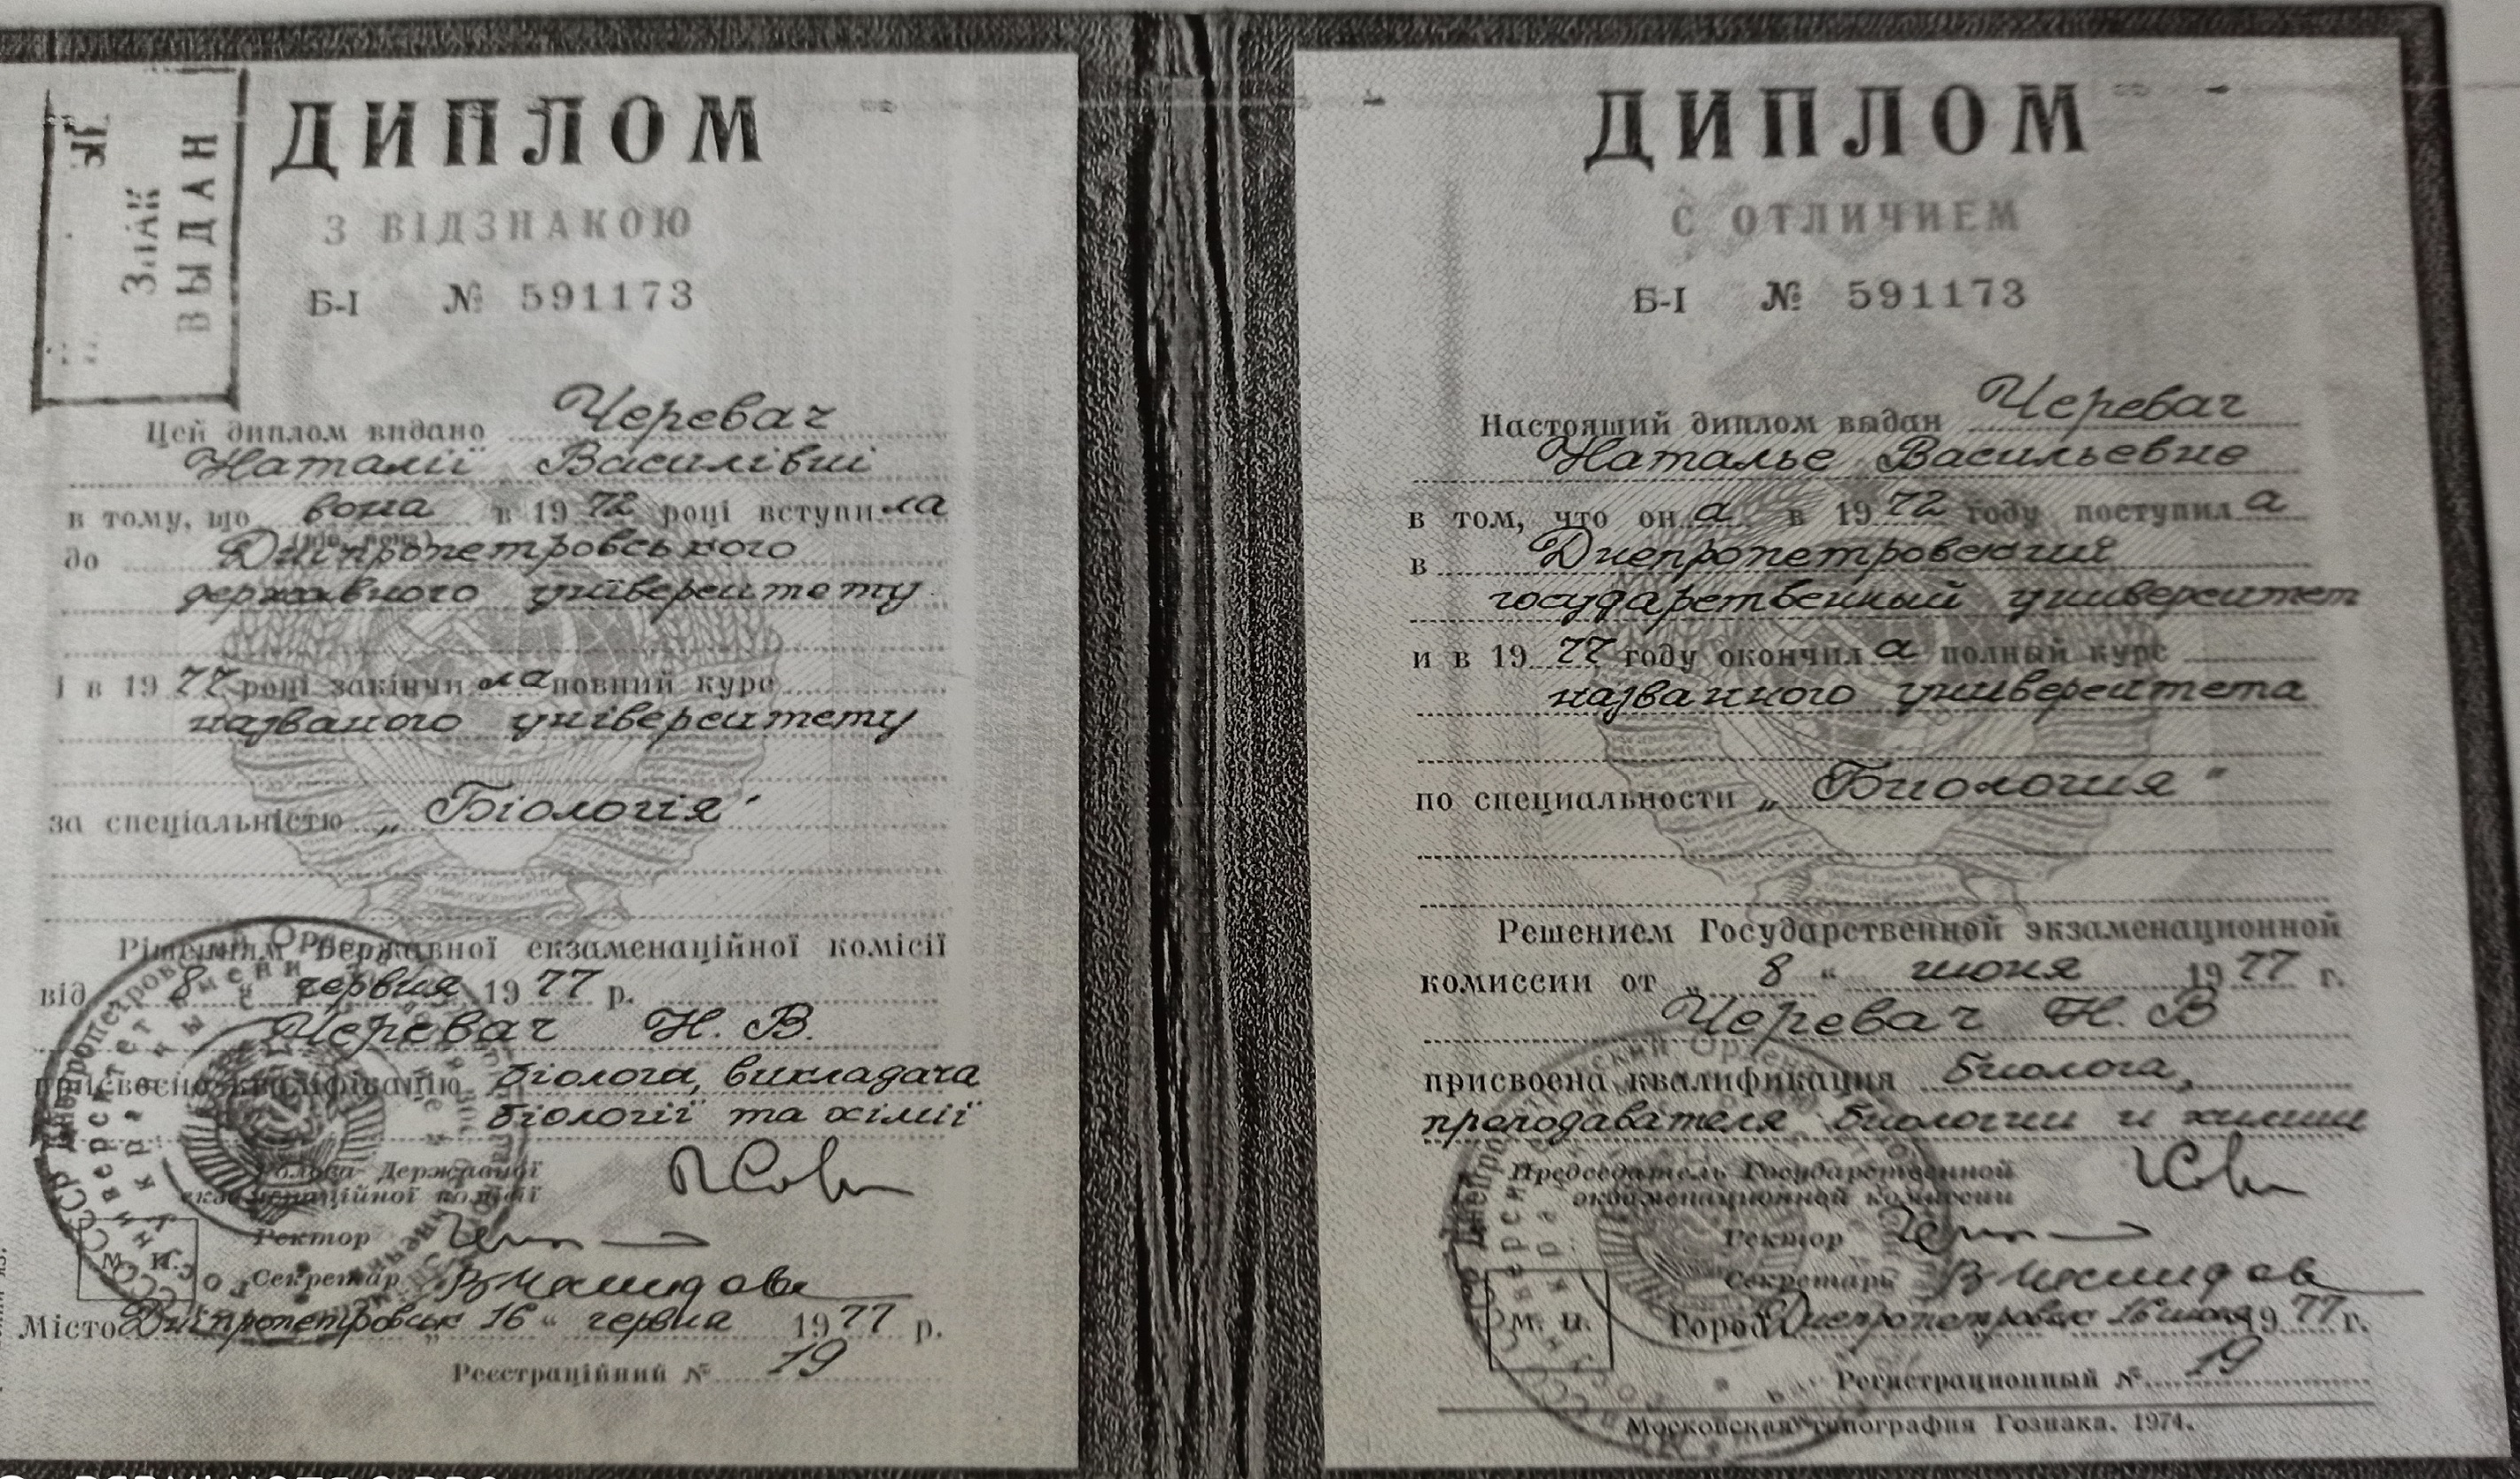 ЗНАК
ВЫДАН
ДИПЛОМ
З ВІДЗНАКОЮ
Б-І № 591173
Цей диплом видано Черевач
Наталії Василівні
в тому, що вона в 1972 році вступила
до Дніпропетровського
державного університету
і в 1977 році закінчила повний курс
названого університету
за спеціальністю „Біологія"
Рішенням Державної екзаменаційної комісії
від 8 " червня 1977 р.
Черевач Н. В.
присвоєно кваліфікацію біолога, викладача
біології та хімії
Голова Державної
екзаменаційної комісії
Ректор
Секретар
М. П.
Місто Дніпропетровськ 16 " червня 1977 р.
Реєстраційний № 19
ДИПЛОМ
С ОТЛИЧИЕМ
Б-І № 591173
Настоящий диплом выдан Черевач
Наталье Васильевне
в том, что она в 1972 году поступила
в Днепропетровский
государственный университет
и в 1977 году окончила полный курс
названного университета
по специальности „Биология"
Решением Государственной экзаменационной
комиссии от „ 8 " июня 1977 г.
Черевач Н. В
присвоена квалификация биолога,
преподавателя биологии и химии
Председатель Государственной
экзаменационной комиссии
Ректор
Секретарь
М. П.
Город Днепропетровск 16 июня 1977 г.
Регистрационный № 19
Московская типография Гознака. 1974.